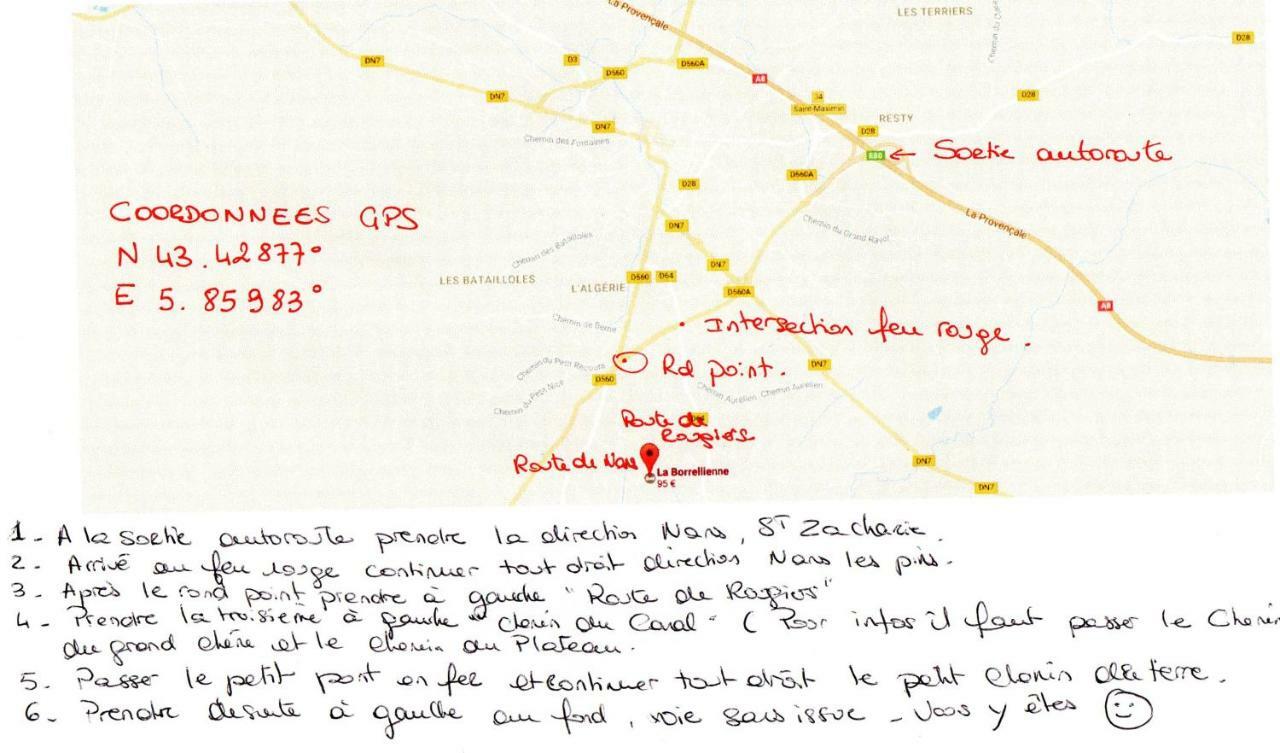 La Provençale
LES TERRIERS
D28
DN7
D3
D560
D560A
A8
DN7
34
Saint-Maximin
D28
RESTY
DN7
Chemin des Fontaines
D28
E80
← Sortie autoroute
D560A
D28
COORDONNEES GPS
N 43.42877°
E 5.85983°
DN7
Chemin du Grand Rayol
La Provençale
Chemin des Batailloles
LES BATAILLOLES
DN7
D560
D64
L'ALGÉRIE
D560A
A8
Chemin de Berne
• Intersection feu rouge.
Rd point.
Chemin du Petit Recours
DN7
D560
Chemin du Petit Nice
Chemin Aurélien
Chemin Aurélien
Route de
Rougiers
Route de Nans
La Borrellienne
95 €
DN7
DN7
1 - A la sortie autoroute prendre la direction Nans, ST Zacharie.
2 - Arrivé au feu rouge continuer tout droit direction Nans les pins.
3 - Après le rond point prendre à gauche "Route de Rougiers"
4 - Prendre la troisième à gauche "chemin du Canal" (Pour infos il faut passer le Chemin
du grand chêne et le chemin du Plateau.
5. Passer le petit pont en fer et continuer tout droit le petit chemin de terre.
6 - Prendre à gauche au fond, voie sans issue - Vous y êtes